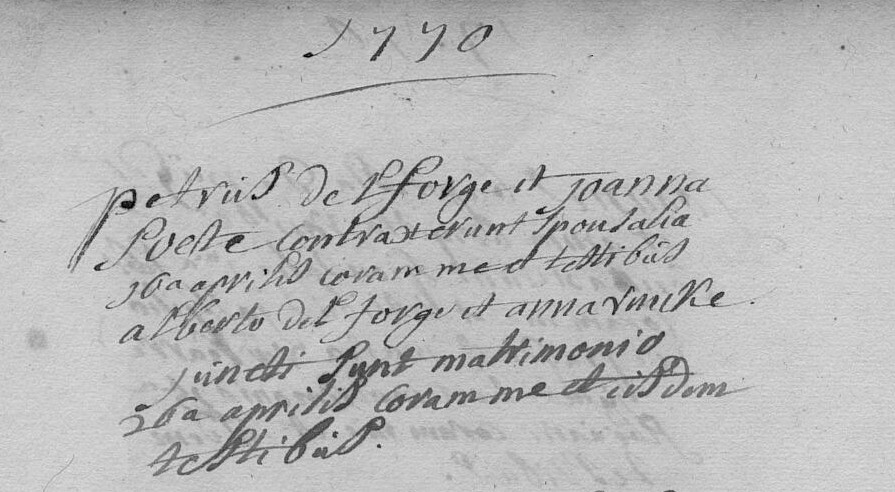 1770
petrus del forge et joanna
soete contraxerunt sponsalia
16a aprilis coram me et testibus
alberto del forge et anna vincke.
juncti sunt matrimonio
26a aprilis coram me et eisdem
testibus.